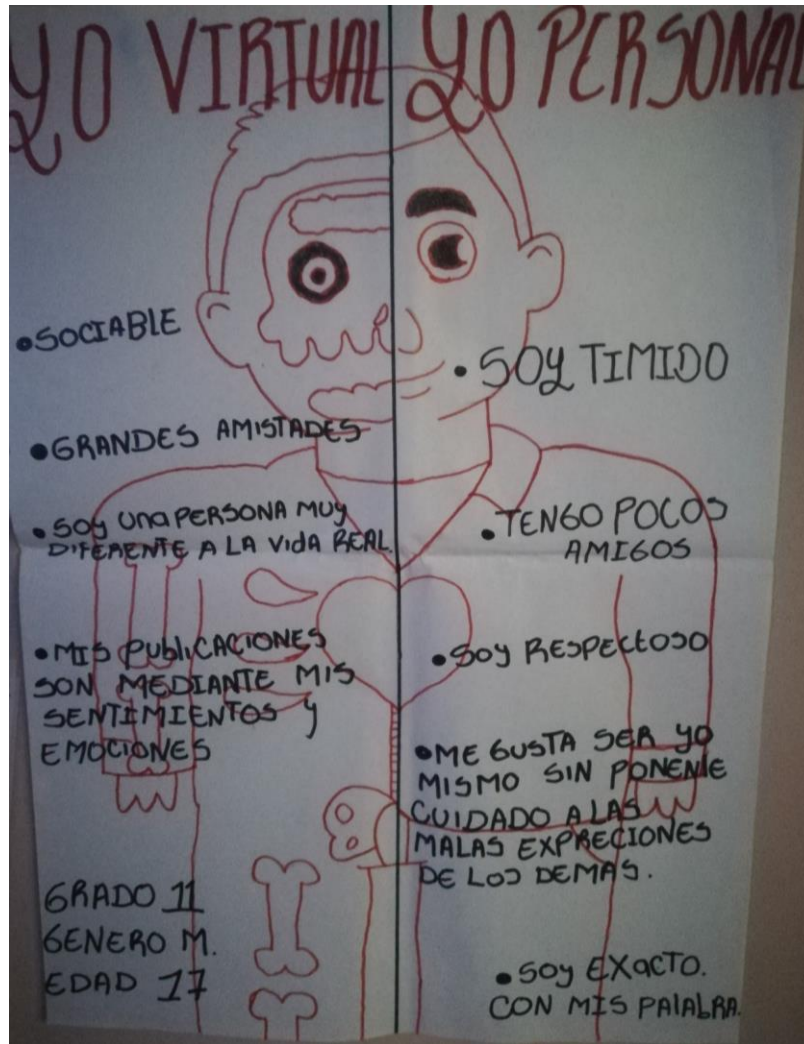 YO VIRTUAL
•SOCIABLE
•GRANDES AMISTADES
•SOY UNA PERSONA MUY
DIFERENTE A LA VIDA REAL.
•MIS PUBLICACIONES
SON MEDIANTE MIS
SENTIMIENTOS Y
EMOCIONES
GRADO 11
GENERO M.
EDAD 17
YO PERSONAL
•SOY TIMIDO
•TENGO POCOS
AMIGOS
•SOY RESPECTOSO
•ME GUSTA SER YO
MISMO SIN PONENLE
CUIDADO A LAS
MALAS EXPRECIONES
DE LOS DEMAS.
•SOY EXACTO.
CON MIS PALABRA.